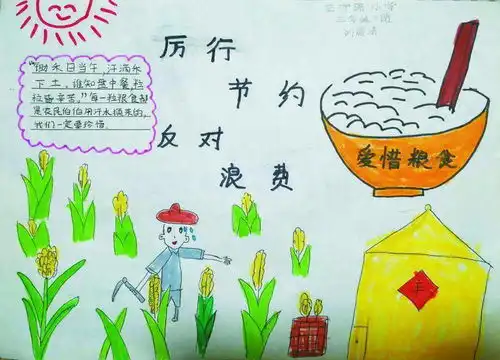 "锄禾日当午,汗滴禾
下土,谁知盘中餐,粒
粒皆辛苦。"每一粒粮食都
是农民伯伯用汗水换来的,
我们一定要珍惜。
厉行
节约
反对
浪费
小学
爱惜粮食
丰